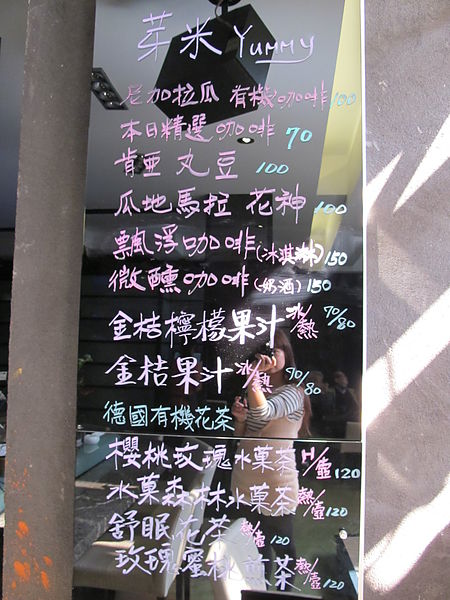 芽米 YUMMY
尼加拉瓜 有機咖啡100
本日精選 咖啡 70
肯亞 丸豆 100
瓜地馬拉 花神 100
飄浮咖啡(冰淇淋)150
微醺咖啡(奶酒)150
金桔檸檬果汁 冰/熱 70/80
金桔果汁 冰/熱 90/80
德國有機花茶
櫻桃玫瑰水菓茶 H/壺120
水菓森林水菓茶 熱/壺120
舒眠花茶 熱/壺120
玫瑰蜜桃煎茶 熱/壺120